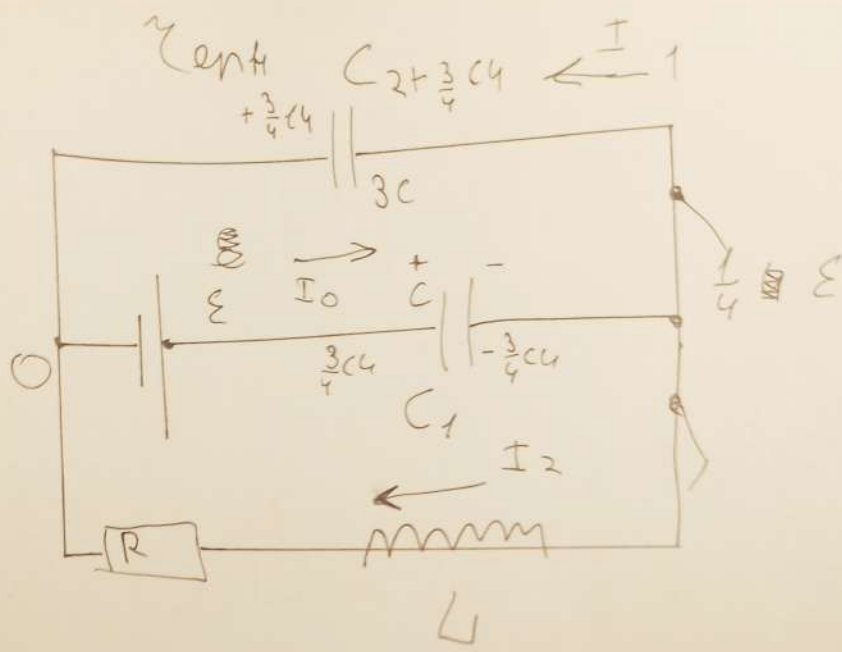 C₂ + 3/4 C4
I
1
+ 3/4 C4
3C
ε
I₀
+
-
C
1/4 ε
0
3/4 C4
- 3/4 C4
C₁
I₂
R
L